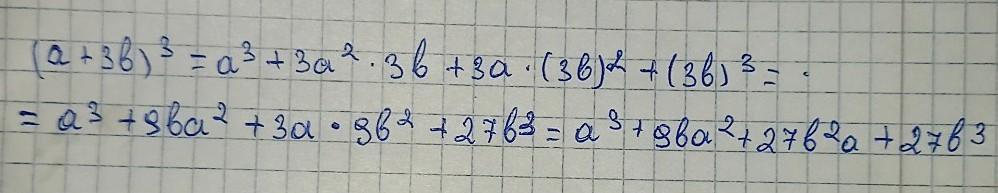 (a+3b)³ = a³ + 3a² · 3b + 3a · (3b)² + (3b)³ =
= a³ + 9ba² + 3a · 9b² + 27b³ = a³ + 9ba² + 27b²a + 27b³